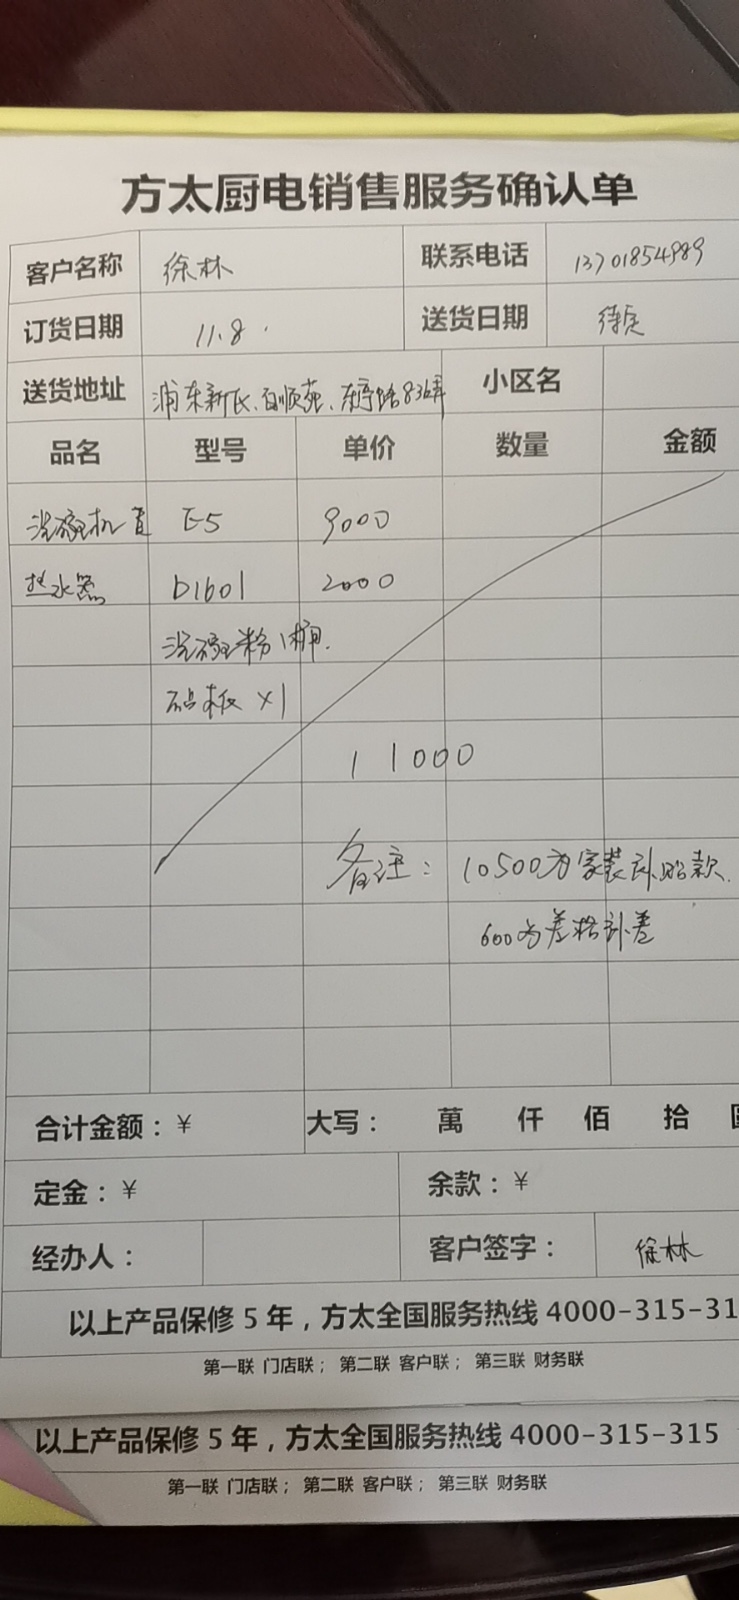 方太厨电销售服务确认单
客户名称 徐林 联系电话 13701854989
订货日期 11.8. 送货日期 待定
送货地址 浦东新区、百顺苑、 小区名
品名 型号 单价 数量 金额
洗碗机 E5 9000
热水器 D1601 2000
洗碗粉1桶
砧板 x1
11000
备注: 10500为家装补贴款.
600为差格补差
合计金额:¥ 大写: 萬 仟 佰 拾
定金:¥ 余款:¥
经办人: 客户签字: 徐林
以上产品保修5年,方太全国服务热线 4000-315-31
第一联 门店联; 第二联 客户联; 第三联 财务联
以上产品保修5年,方太全国服务热线 4000-315-315
第一联 门店联; 第二联 客户联; 第三联 财务联